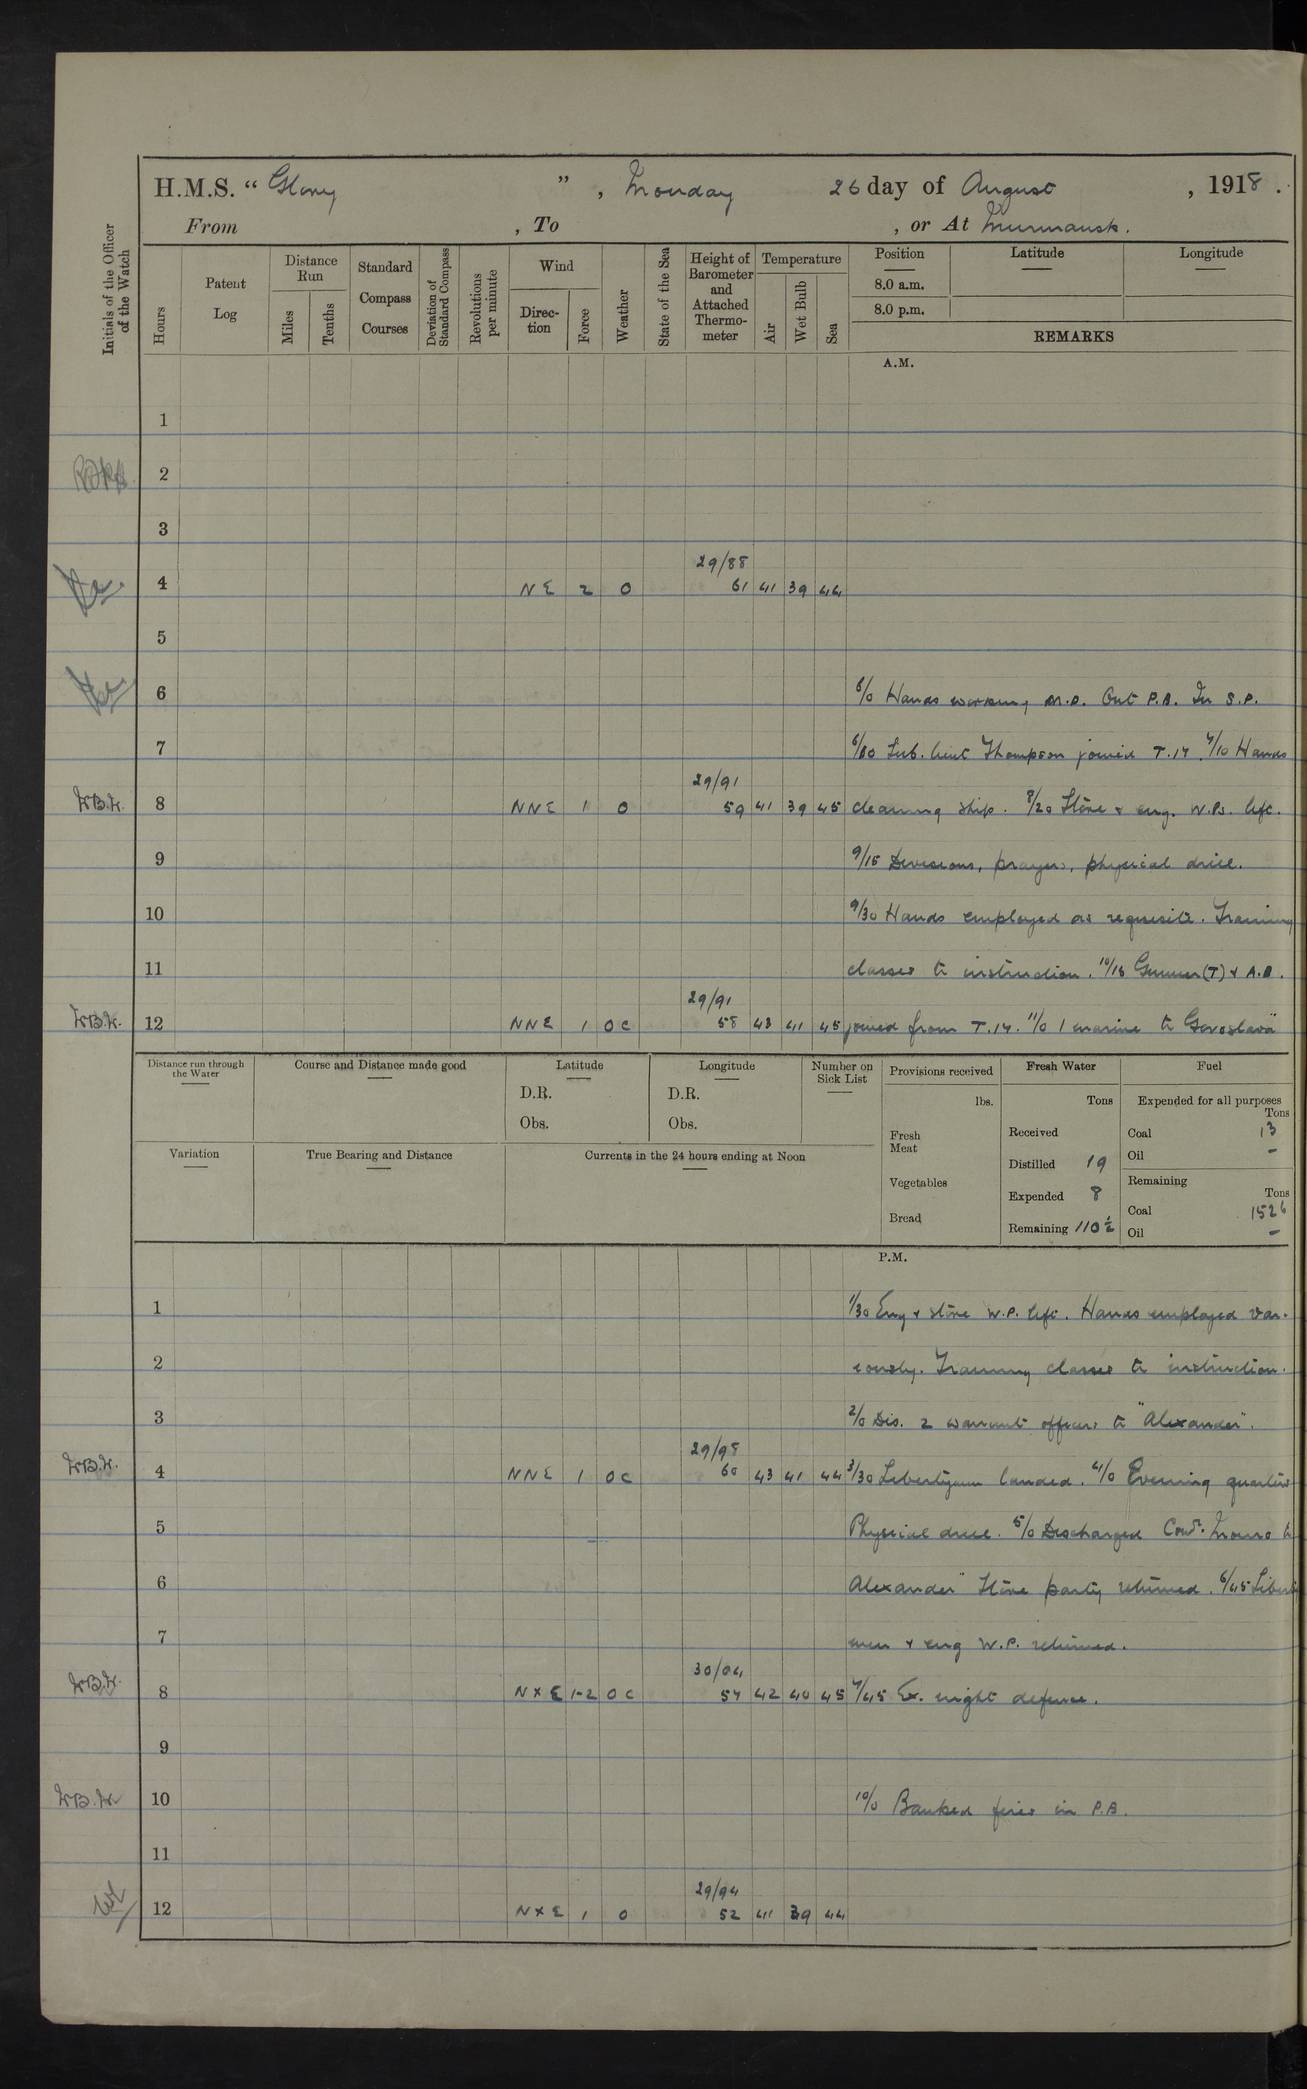 H.M.S. “ Glory ” , Monday 26 day of August , 1918 .
From , To , or At Murmansk.
Initials of the Officer of the Watch
Hours
Patent Log
Distance Run
Miles
Tenths
Standard Compass Courses
Deviation of Standard Compass
Revolutions per minute
Wind
Direc- tion
Force
Weather
State of the Sea
Height of Barometer and Attached Thermo- meter
Temperature
Air
Wet Bulb
Sea
Position
8.0 a.m.
8.0 p.m.
Latitude
Longitude
REMARKS
A.M.
1
2
3
29/88
4 NE 2 O 61 41 39 44
5
6 6/0 Hands working M.D. Out P.A. In S.P.
7 Sub. Lieut Thompson joined T.14. 7/10 Hands
29/91
W.B.W. 8 NNE 1 O 59 41 39 45 cleaning ship. 8/20 Store & eng. W.Ps. left.
9 9/15 Divisions, prayers, physical drill.
10 9/30 Hands employed as requisite. Training
11 classes to instruction. 10/15 Gunner(T) & A.B.
29/91
W.B.W. 12 NNE 1 OC 58 43 41 45 joined from T.14. 11/0 1 marine to
Distance run through the Water
Course and Distance made good
Latitude
D.R.
Obs.
Longitude
D.R.
Obs.
Number on Sick List
Provisions received
lbs.
Fresh Meat
Vegetables
Bread
Fresh Water
Tons
Received
Distilled 19
Expended 8
Remaining 110½
Fuel
Expended for all purposes
Tons
Coal 13
Oil –
Remaining
Tons
Coal 1526
Oil –
Variation
True Bearing and Distance
Currents in the 24 hours ending at Noon
P.M.
1 1/30 Eng & store W.P. left. Hands employed var-
2 iously. Training classes to instruction.
3 2/0 Dis. 2 warrant officers to "Alexander".
29/98
W.B.W. 4 NNE 1 OC 60 43 41 44 3/30 Libertymen landed. 4/0 Evening quarters
5 Physical drill. 5/0 Discharged to
6 Alexander" Store party returned. 6/45 Liberty
7 men & eng W.P. returned.
30/04
W.B.W. 8 N×E 1-2 OC 54 42 40 45 7/45 Ex. night defence.
9
W.B.W. 10 10/0 Banked fires in P.B.
11
29/94
12 N×E 1 O 52 41 39 44